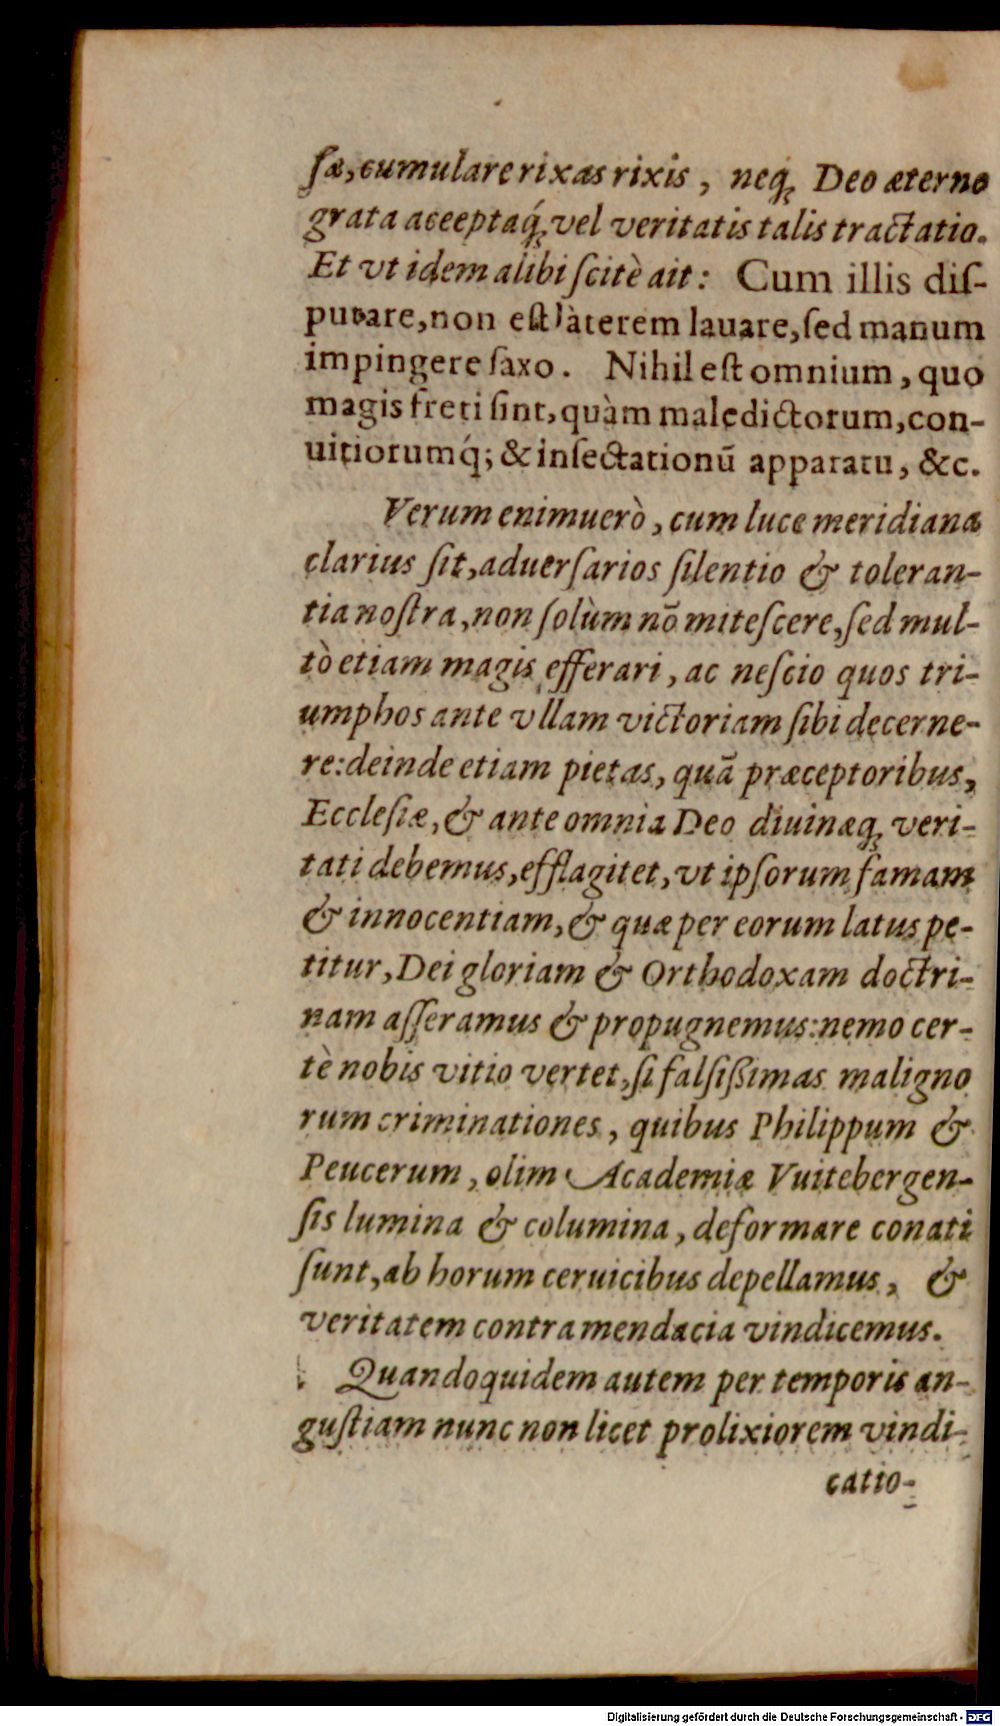 ſæ, cumulare rixas rixis, neq́ꝫ Deo æterno
grata acceptaq́ꝫ vel veritatis talis tractatio.
Et vt idem alibi ſcitè ait: Cum illis diſ-
putare, non eſt làterem lauare, ſed manum
impingere ſaxo. Nihil eſt omnium, quo
magis freti ſint, quàm maledictorum, con-
uitiorumq́; & inſectationũ apparatu, &c.
Verum enimuerò, cum luce meridiana
clarius ſit, aduerſarios ſilentio & toleran-
tia noſtra, non ſolùm nõ miteſcere, ſed mul-
tò etiam magis efferari, ac neſcio quos tri-
umphos ante vllam victoriam ſibi decerne-
re: deinde etiam pietas, quã præceptoribus,
Eccleſiæ, & ante omnia Deo diuinæqꝫ veri-
tati debemus, efflagitet, vt ipſorum famam
& innocentiam, & quæ per eorum latus pe-
titur, Dei gloriam & Orthodoxam doctri-
nam aſſeramus & propugnemus: nemo cer-
tè nobis vitio vertet, ſi falſiſsimas maligno
rum criminationes, quibus Philippum &
Peucerum, olim Academiæ Vuitebergen-
ſis lumina & columina, deformare conati
ſunt, ab horum ceruicibus depellamus, &
veritatem contra mendacia vindicemus.
Quandoquidem autem per temporis an-
guſtiam nunc non licet prolixiorem vindi-
catio-
Digitalisierung gefördert durch die Deutsche Forschungsgemeinschaft - DFG